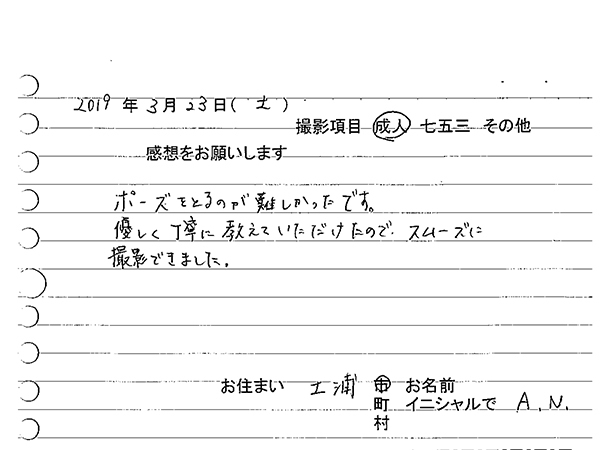 2019年3月23日(土)
撮影項目 成人 七五三 その他
感想をお願いします
ポーズをとるのが難しかったです。
優しく丁寧に教えていただけたので、スムーズに
撮影できました。
お住まい 土浦 市 お名前
町 イニシャルで A.N.
村